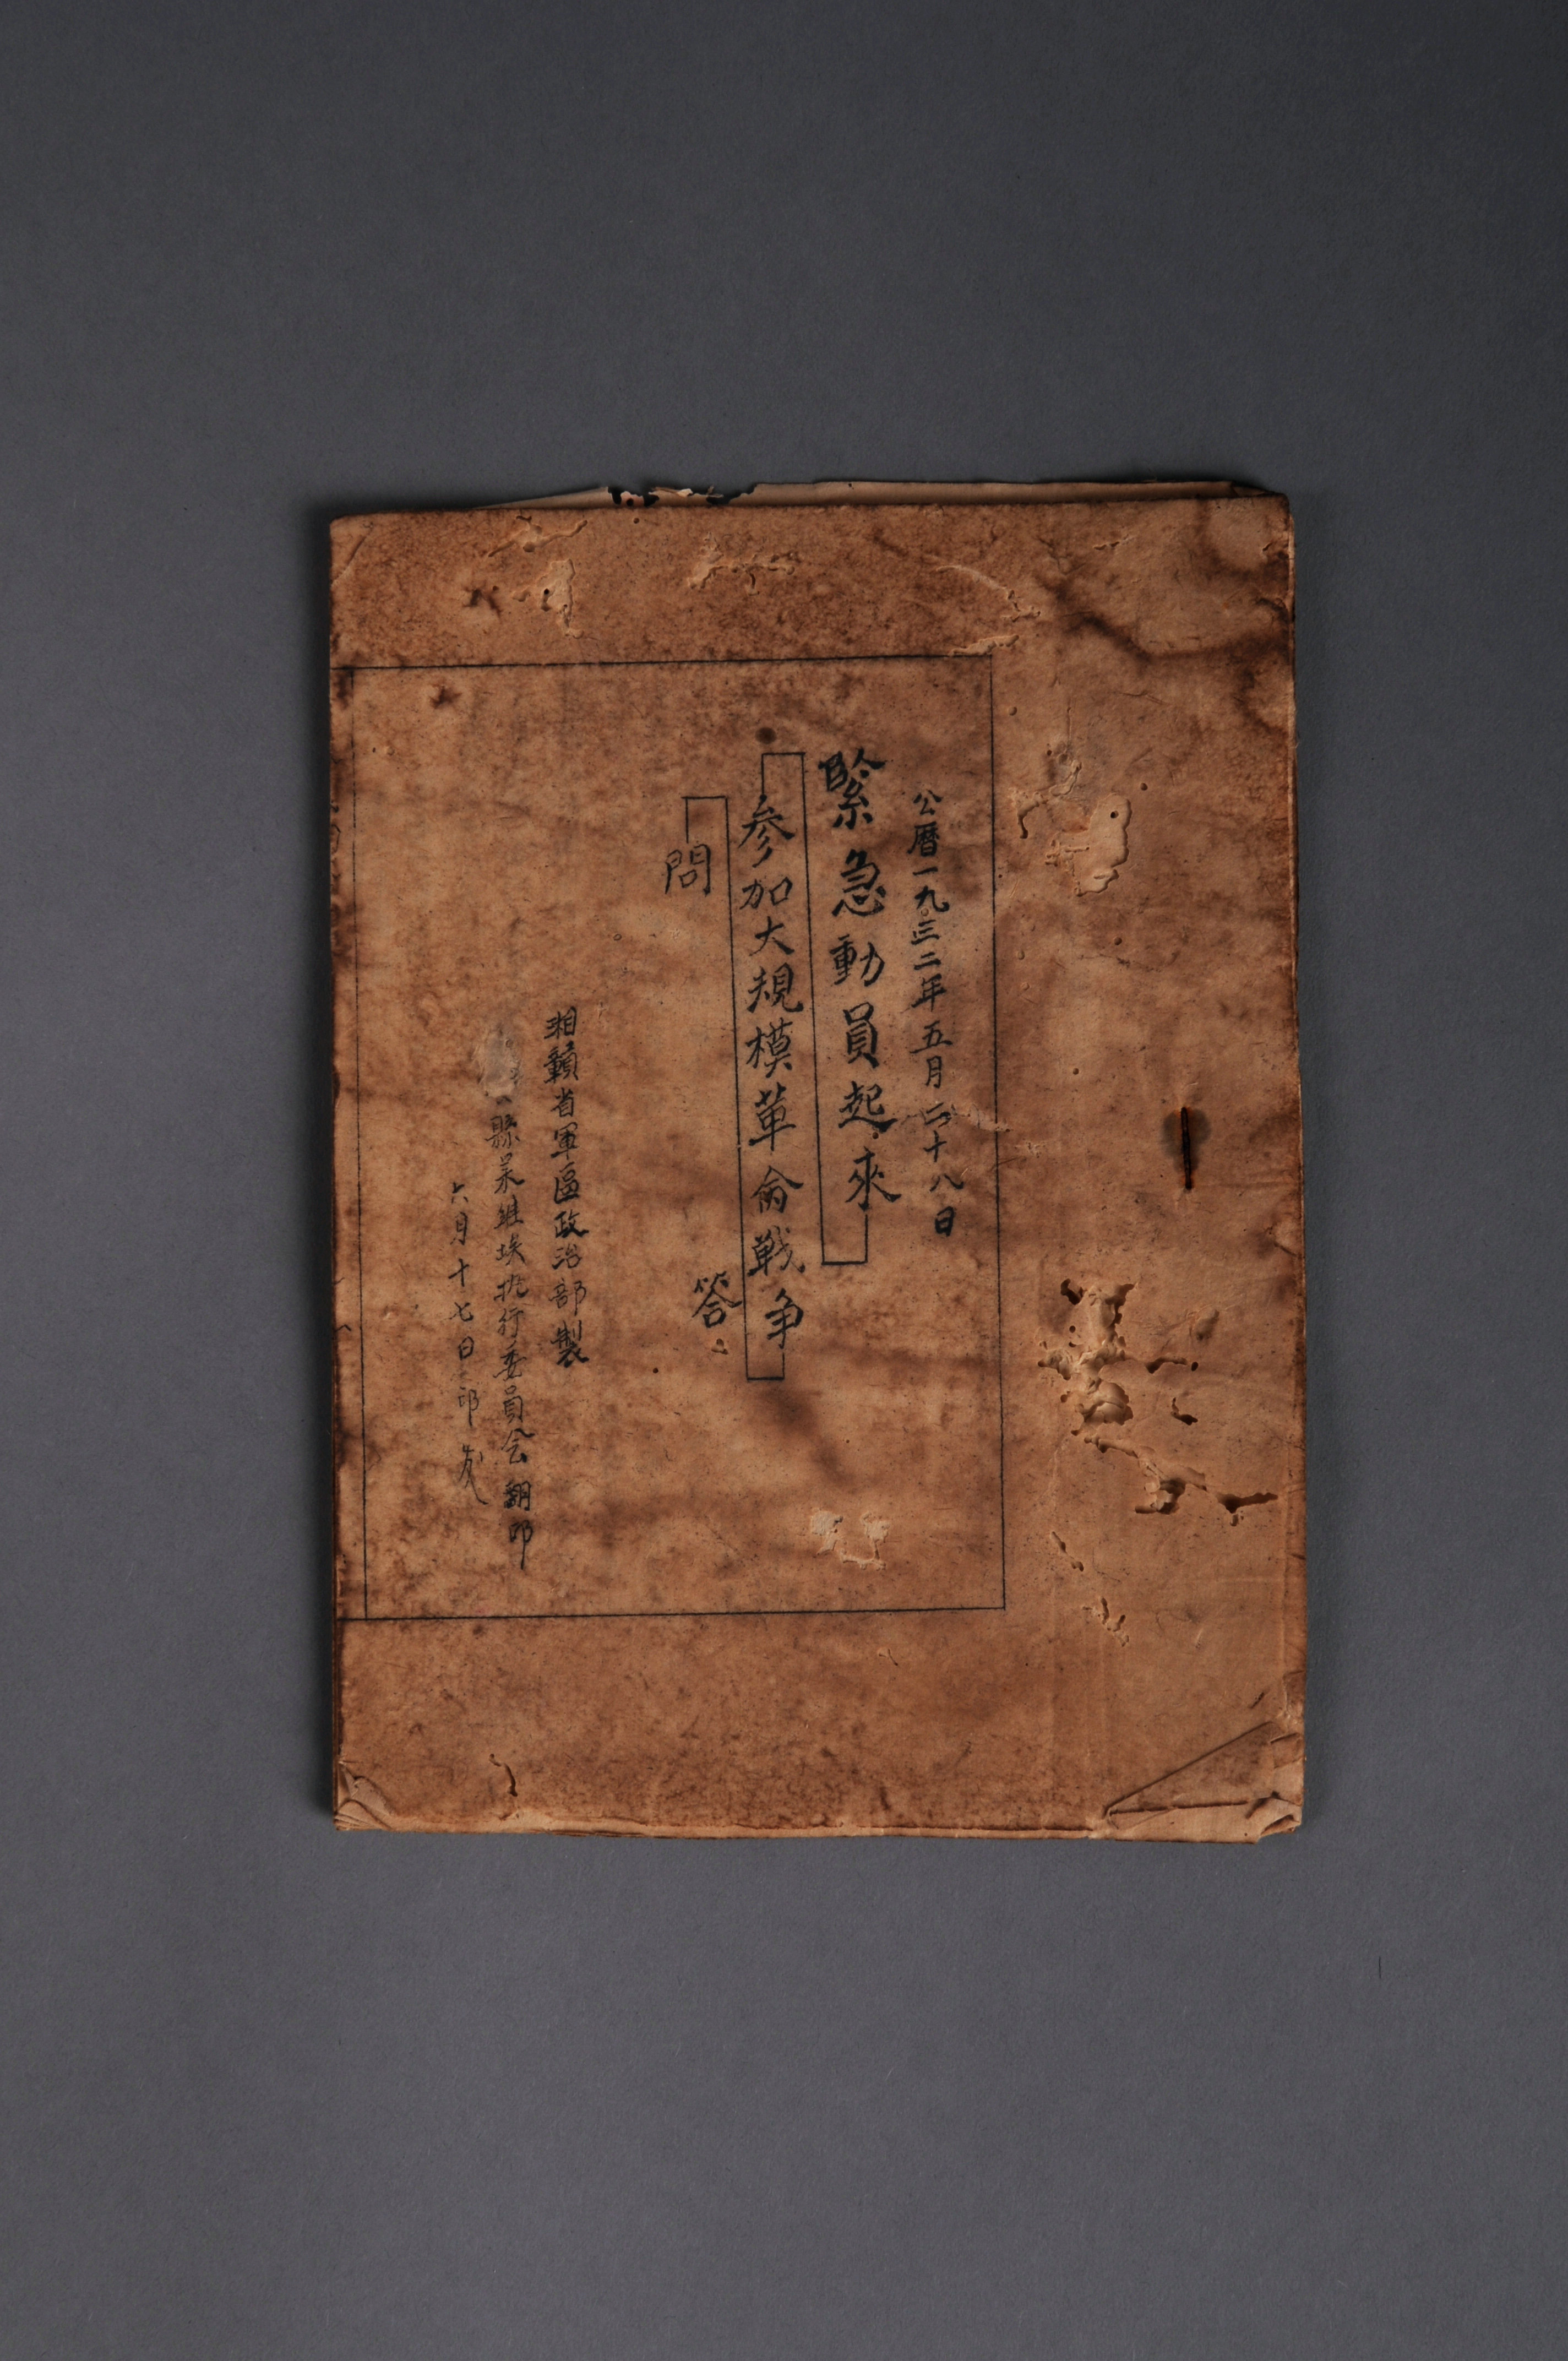 公曆一九三二年五月二十八日
緊急動員起來
參加大規模革命戰争
問答
湘贛省軍區政治部製
縣蘇維埃执行委員会翻印
六月十七日印发